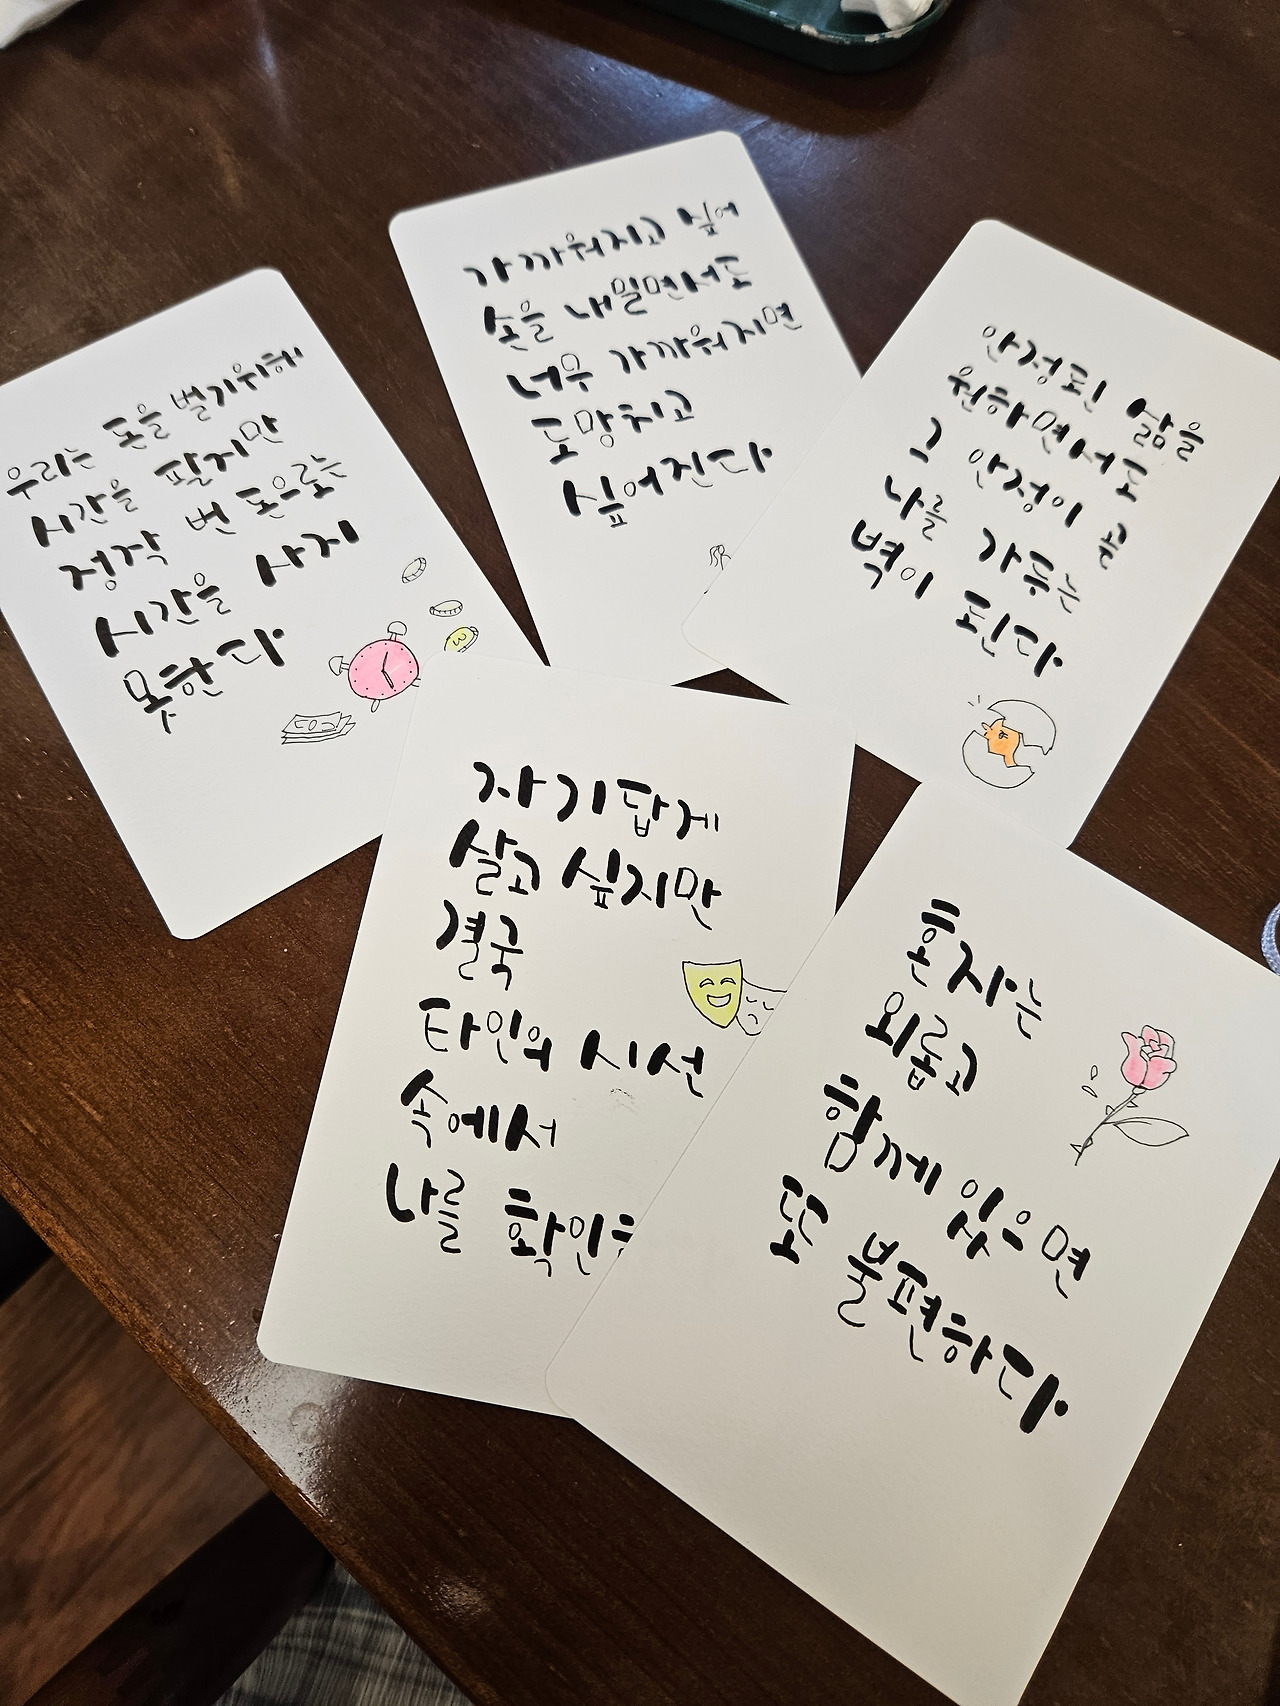 우리는 돈을 벌기위해
시간을 팔지만
정작 번 돈으로는
시간을 사지
못한다
가까워지고 싶어
손을 내밀면서도
너무 가까워지면
도망치고
싶어진다
안정된 삶을
원하면서도
그 안정이 곧
나를 가두는
벽이 된다
자기답게
살고 싶지만
결국
타인의 시선
속에서
나를 확인
혼자는
외롭고
함께 있으면
또 불편하다